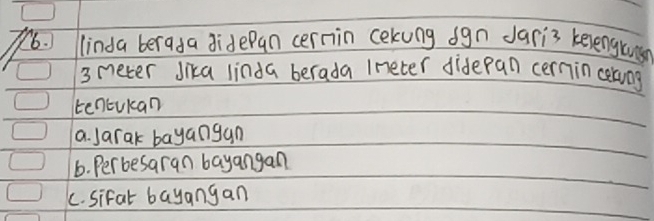 6. linda berada didepan cermin cekung dgn Jari2 kelengkungan
3 meter Jika linda berada 1meter didepan cermin cekung
tentukan
a. Jarak bayangan
b. Perbesaran bayangan
c. Sifat bayangan